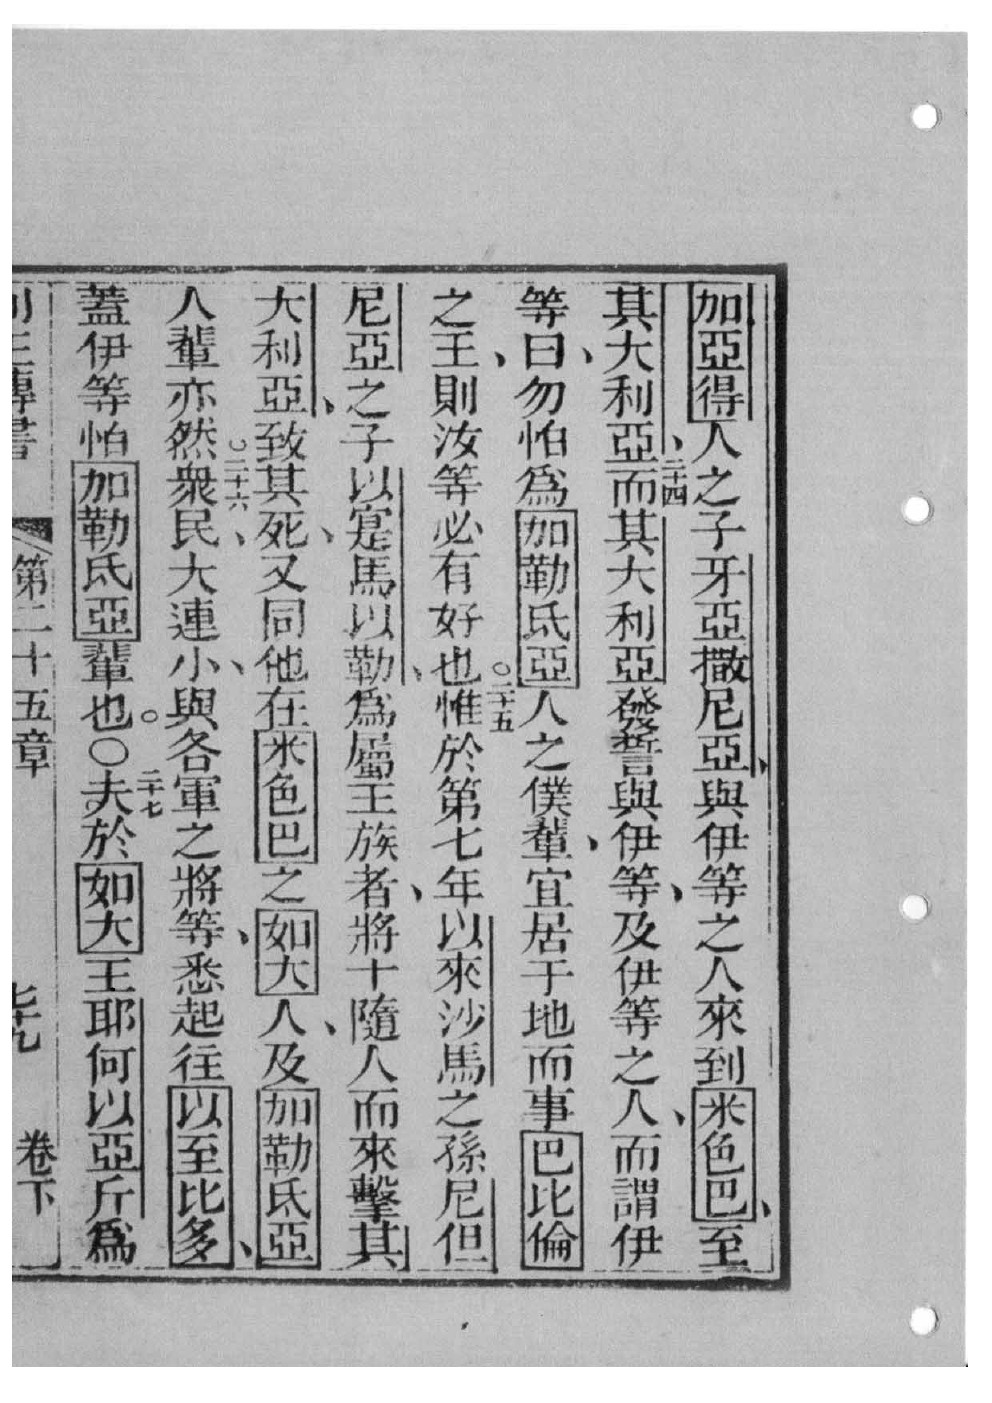 加亞得人之子牙亞撒尼亞、與伊等之人來到米色巴、至
其大利亞、二十四而其大利亞發誓與伊等、及伊等之人、而謂伊
等曰、勿怕為加勒氐亞人之僕輩、宜居于地而事巴比倫
之王、則汝等必有好也○二十五惟於第七年以來沙馬之孫尼但
尼亞之子以寔馬以勒、為屬王族者、將十隨人而來擊其
大利亞、致其死、又同他在米色巴之如大人、及加勒氐亞
人輩亦然○二十六衆民、大連小、與各軍之將等、悉起往以至比多、
蓋伊等怕加勒氐亞輩也○〇二十七夫於如大王耶何以亞斤為
列王傳書 第二十五章 七十九 卷下